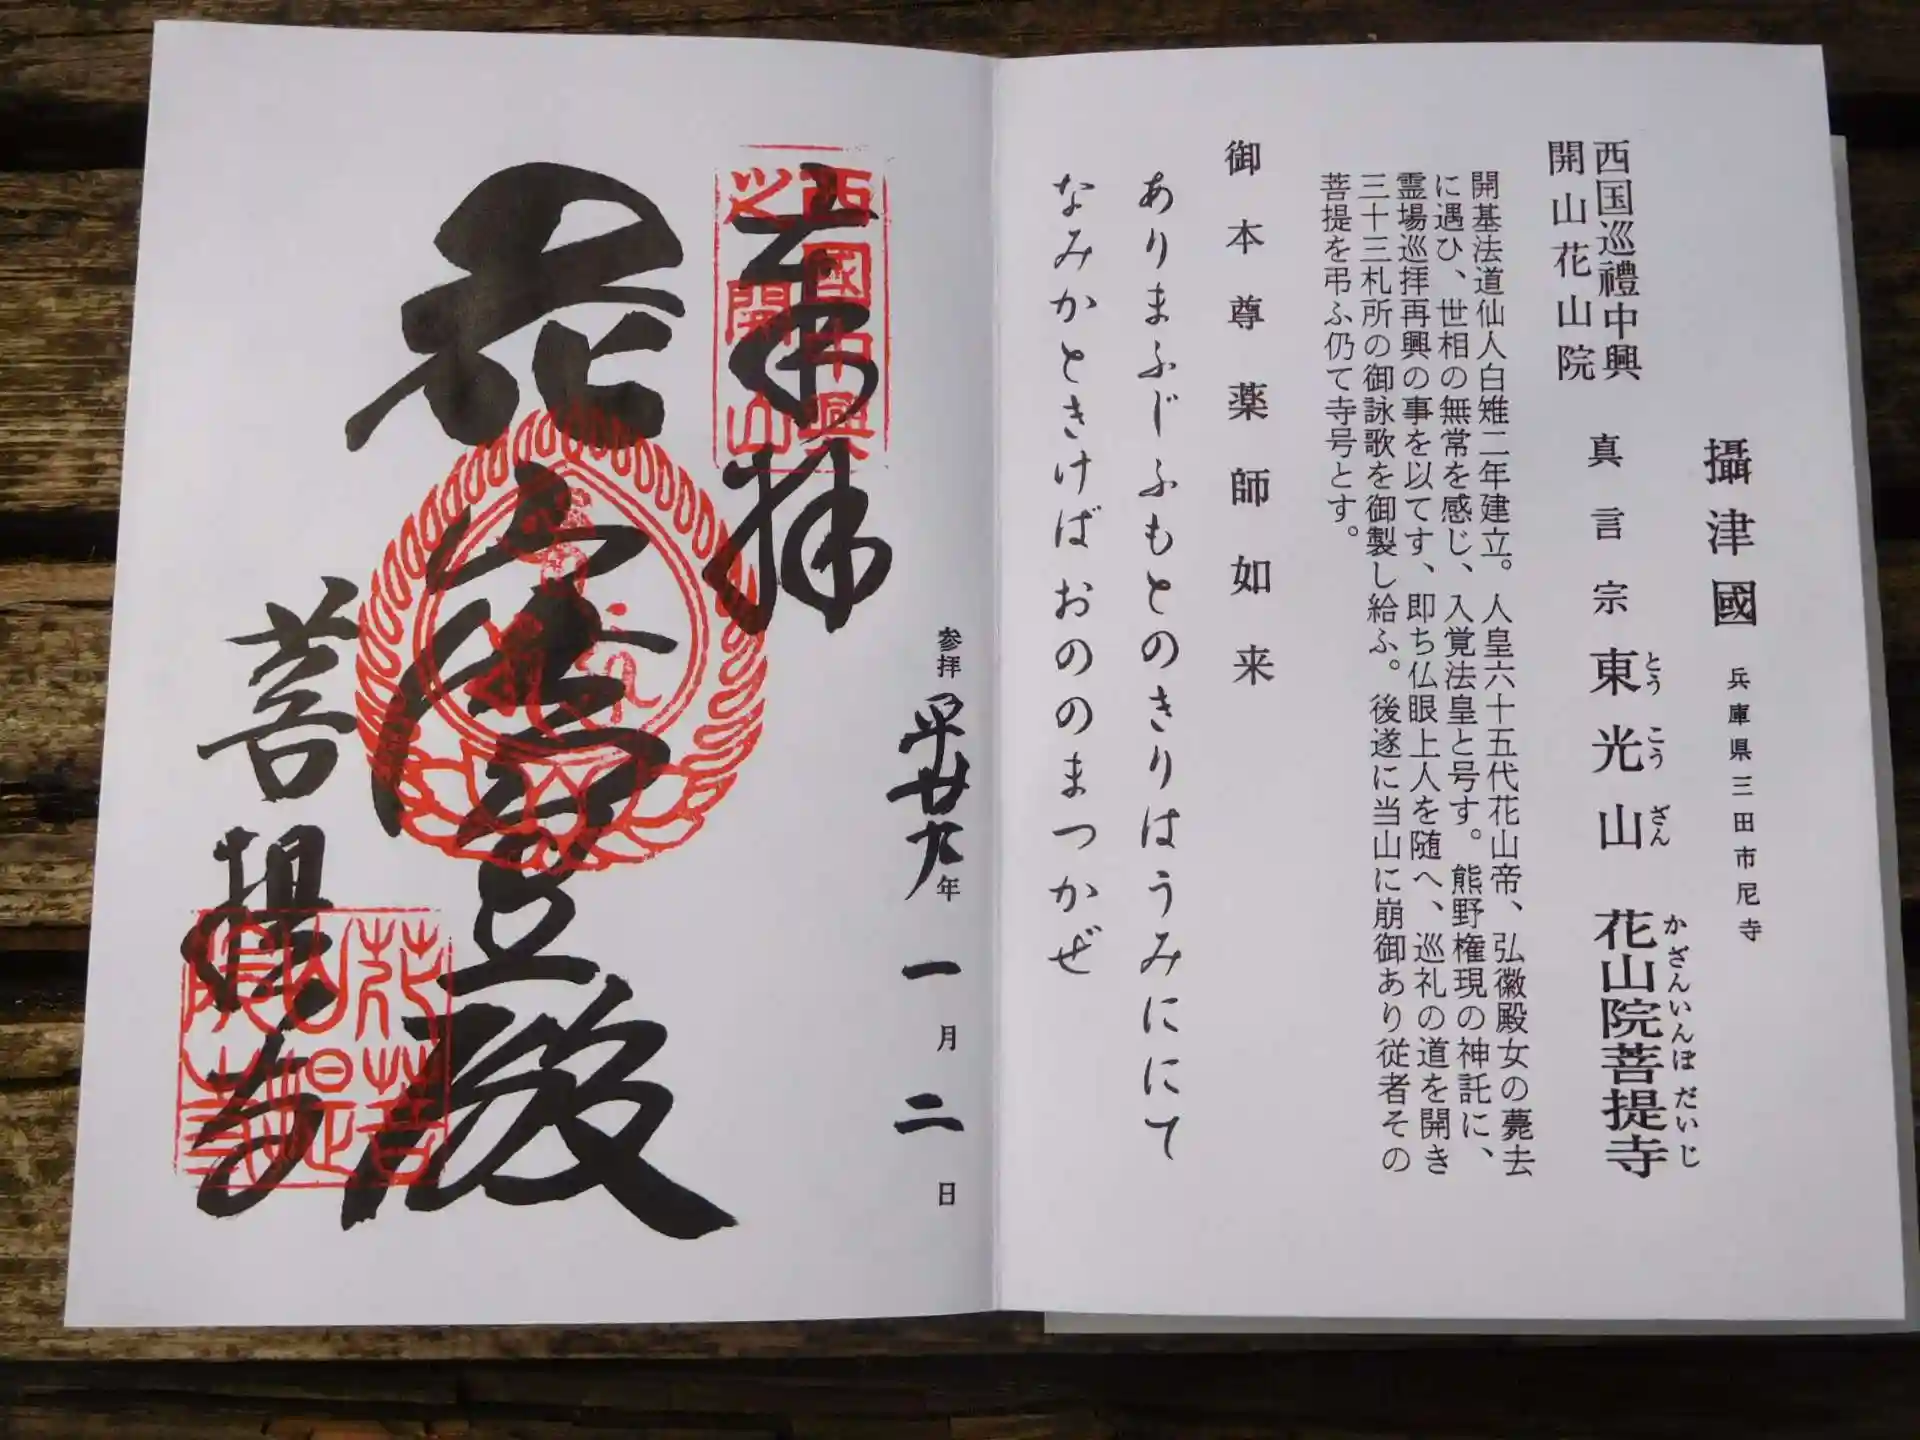 攝津國 兵庫県三田市尼寺
西国巡禮中興
開山花山院
真言宗 東光山 花山院菩提寺
とうこうざん かざんいんぼだいじ
開基法道仙人白雉二年建立。人皇六十五代花山帝、弘徽殿女の薨去
に遇ひ、世相の無常を感じ、入覚法皇と号す。熊野権現の神託に、
霊場巡拝再興の事を以てす、即ち仏眼上人を随へ、巡礼の道を開き
三十三札所の御詠歌を御製し給ふ。後遂に当山に崩御あり従者その
菩提を弔ふ仍て寺号とす。
御本尊薬師如来
ありまふじふもとのきりはうみににて
なみかときけばおののまつかぜ
参拝 平廿九年一月二日
奉拝
西國中興
之開山
花山法皇殿
菩提寺
花山院菩提寺